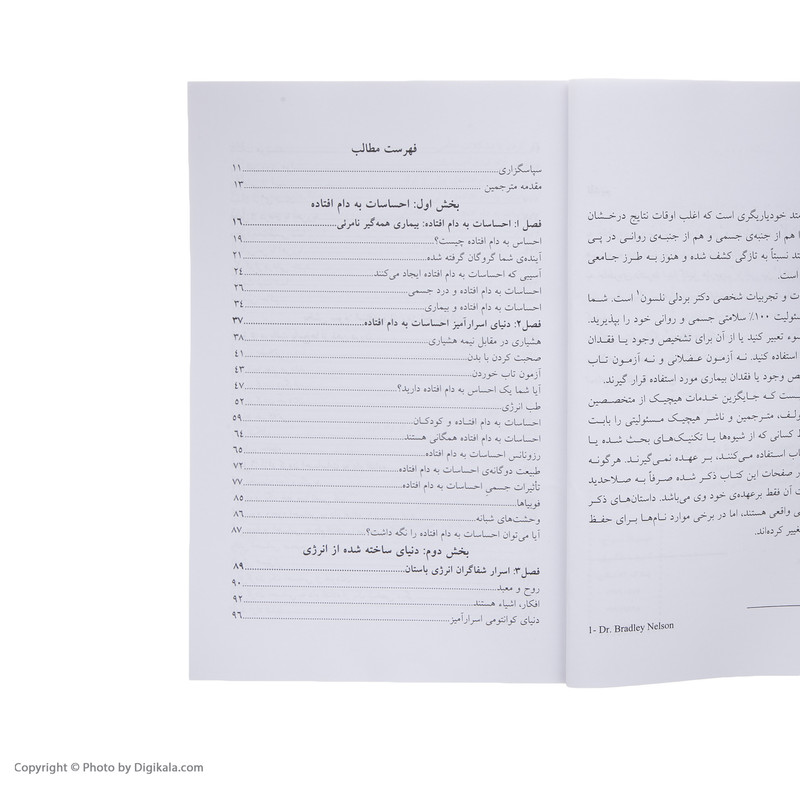 متد خودیاریگری است که اغلب اوقات نتایج درخشان
هم از جنبه‌ی جسمی و هم از جنبه‌ی روانی در پی
متد نسبتاً به تازگی کشف شده و هنوز به طرز جامعی
است.
و تجربیات شخصی دکتر بردلی نلسون۱ است. شما
مسئولیت ۱۰۰٪ سلامتی جسمی و روانی خود را بپذیرید.
تعبیر کنید یا از آن برای تشخیص وجود یا فقدان
استفاده کنید. نه آزمون عضلانی و نه آزمون تاب
وجود یا فقدان بیماری مورد استفاده قرار گیرند.
که جایگزین خدمات هیچیک از متخصصین
مترجمین و ناشر هیچیک مسئولیتی را بابت
کسانی که از شیوه‌ها یا تکنیک‌های بحث شده یا
استفاده می‌کنند، بر عهده نمی‌گیرند. هرگونه
صفحات این کتاب ذکر شده صرفاً به صلاحدید
آن فقط برعهده‌ی خود وی می‌باشد. داستان‌های ذکر
واقعی هستند، اما در برخی موارد نام‌ها برای حفظ
تغییر کرده‌اند.
1- Dr. Bradley Nelson
فهرست مطالب
سپاسگزاری ۱۱
مقدمه مترجمین ۱۳
بخش اول: احساسات به دام افتاده
فصل ۱: احساسات به دام افتاده: بیماری همه‌گیر نامرئی ۱۶
احساس به دام افتاده چیست؟ ۱۹
آینده‌ی شما گروگان گرفته شده ۲۱
آسیبی که احساسات به دام افتاده ایجاد می‌کنند ۲۴
احساسات به دام افتاده و درد جسمی ۲۶
احساسات به دام افتاده و بیماری ۳۴
فصل۲: دنیای اسرارآمیز احساسات به دام افتاده ۳۷
هشیاری در مقابل نیمه هشیاری ۳۸
صحبت کردن با بدن ۴۱
آزمون تاب خوردن ۴۳
آیا شما یک احساس به دام افتاده دارید؟ ۴۷
طب انرژی ۵۲
احساسات به دام افتاده و کودکان ۵۹
احساسات به دام افتاده همگانی هستند ۶۴
رزونانس احساسات به دام افتاده ۶۵
طبیعت دوگانه‌ی احساسات به دام افتاده ۷۲
تأثیرات جسمی احساسات به دام افتاده ۷۷
فوبیاها ۸۵
وحشت‌های شبانه ۸۶
آیا می‌توان احساسات به دام افتاده را نگه داشت؟ ۸۷
بخش دوم: دنیای ساخته شده از انرژی
فصل۳: اسرار شفاگران انرژی باستان ۸۹
روح و معبد ۹۰
افکار، اشیاء هستند ۹۲
دنیای کوانتومی اسرارآمیز ۹۶
Copyright © Photo by Digikala.com